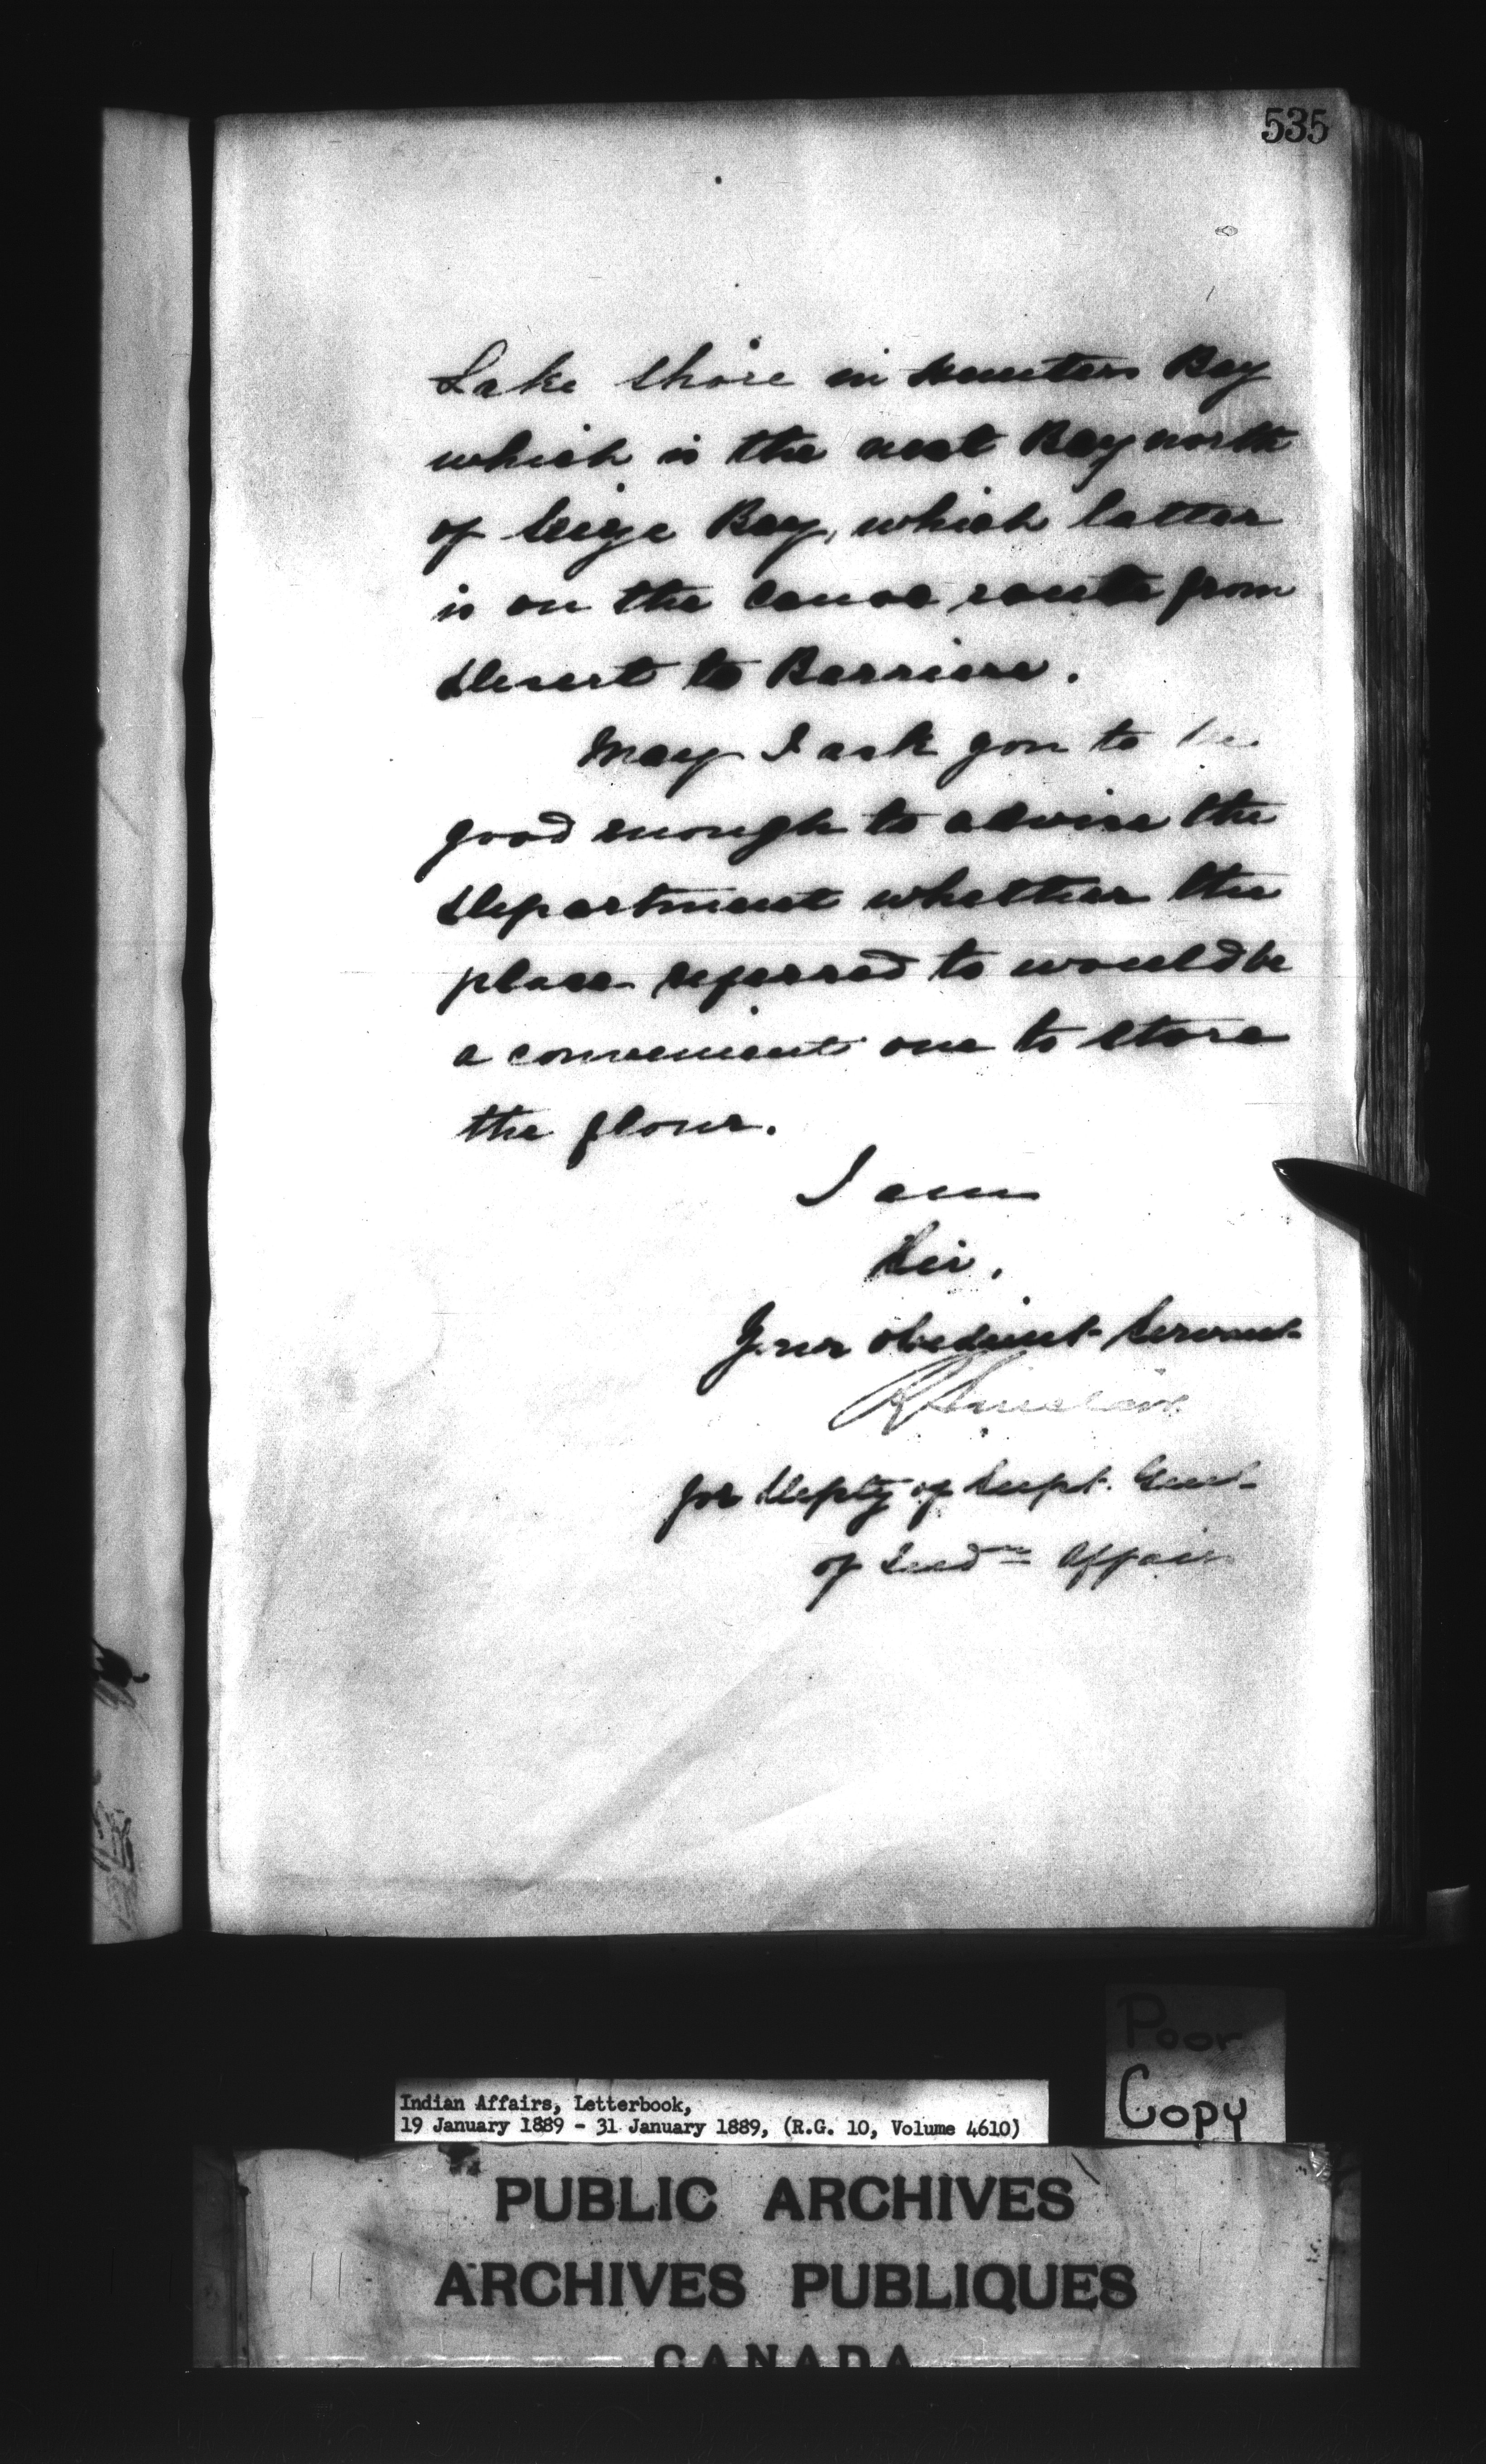 535
Lake Shore in Hunters Bay
which is the next Bay north
of Seige Bay, which latter
is on the canoe route from
Desert to Barriere.
May I ask you to be
good enough to advise the
Department whether the
place referred to would be
a convenient one to store
the flour.
I am
Sir,
Your obedient Servant
R Sinclair
for Depty of Supt. Genl.
of Indn Affairs
Poor
Copy
Indian Affairs, Letterbook,
19 January 1889 - 31 January 1889, (R.G. 10, Volume 4610)
PUBLIC ARCHIVES
ARCHIVES PUBLIQUES
CANADA